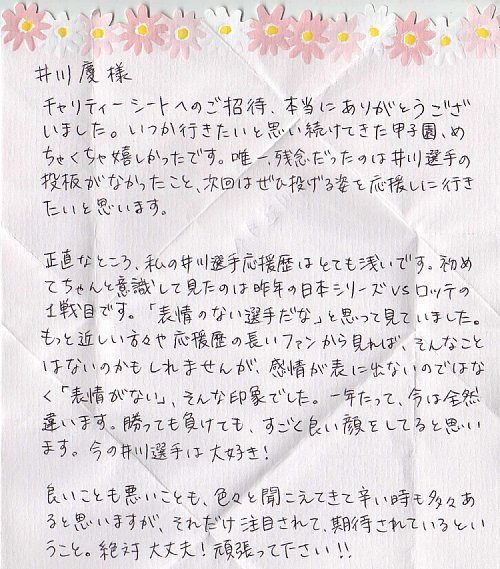 井川慶様
チャリティーシートへのご招待、本当にありがとうござ
いました。いつか行きたいと思い続けてきた甲子園、め
ちゃくちゃ嬉しかったです。唯一、残念だったのは井川選手の
投板がなかったこと、次回はぜひ投げる姿を応援しに行き
たいと思います。
正直なところ、私の井川選手応援歴はとても浅いです。初め
てちゃんと意識して見たのは昨年の日本シリーズVSロッテの
1戦目です。「表情のない選手だな」と思って見ていました。
もっと近しい方々や応援歴の長いファンから見れば、そんなこと
はないのかもしれませんが、感情が表に出ないのではな
く「表情がない」、そんな印象でした。一年たって、今は全然
違います。勝っても負けても、すごく良い顔をしてると思い
ます。今の井川選手は大好き!
良いことも悪いことも、色々と聞こえてきて辛い時も多々あ
ると思いますが、それだけ注目されて、期待されているとい
うこと。絶対大丈夫!頑張って下さい!!